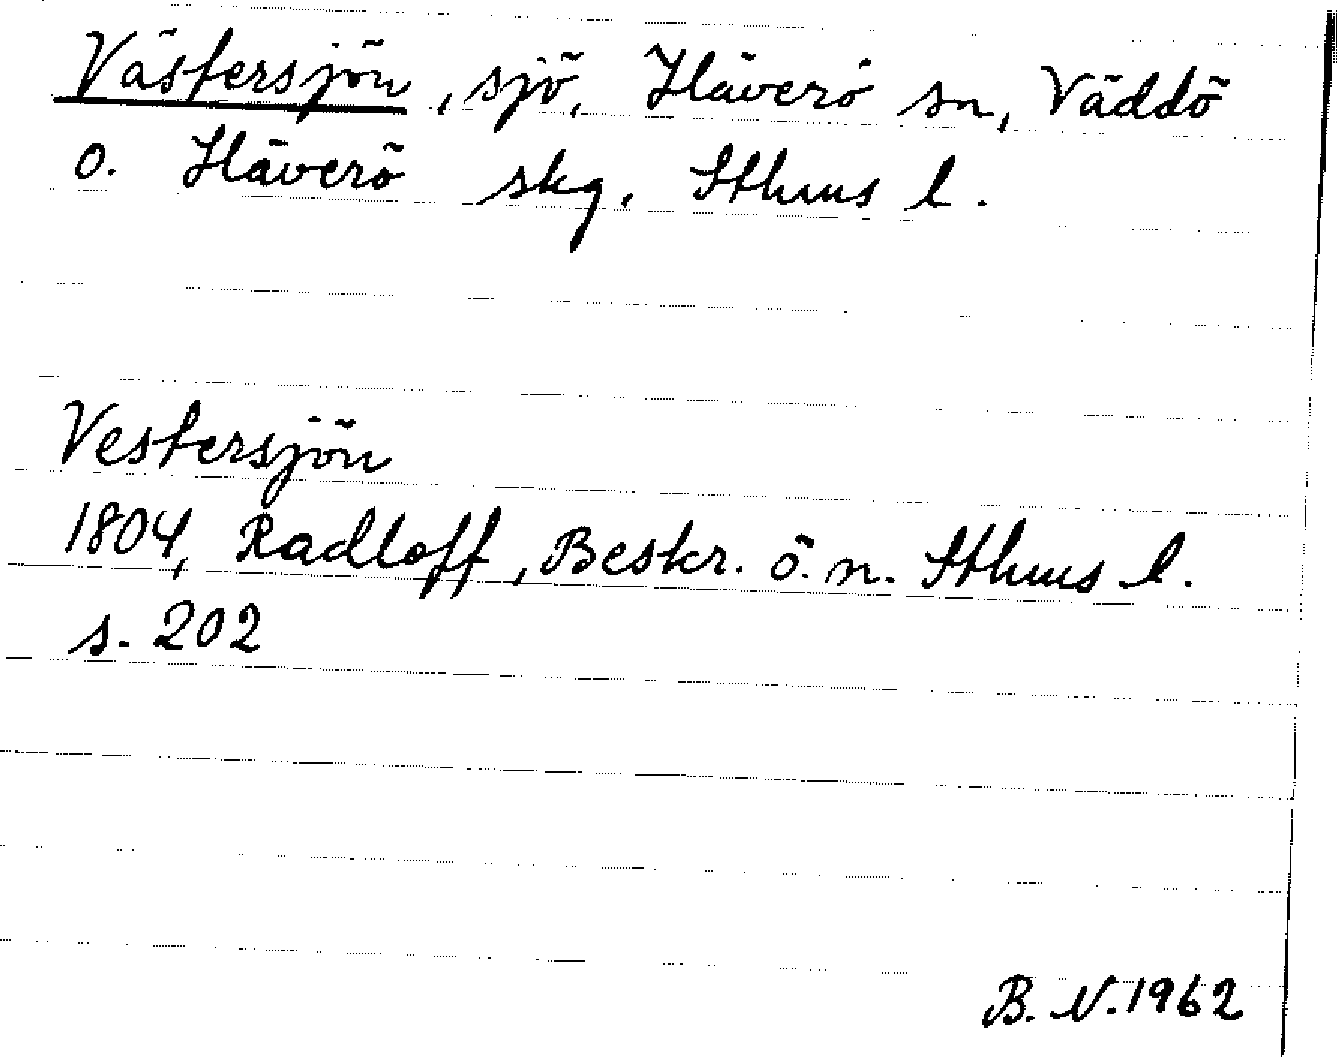 Västersjön, sjö, Häverö sn, Väddö
o. Häverö skg, Sthms l.
Vestersjön
1804, Radloff, Beskr. ö. n. Sthms l.
s. 202
B. N. 1962